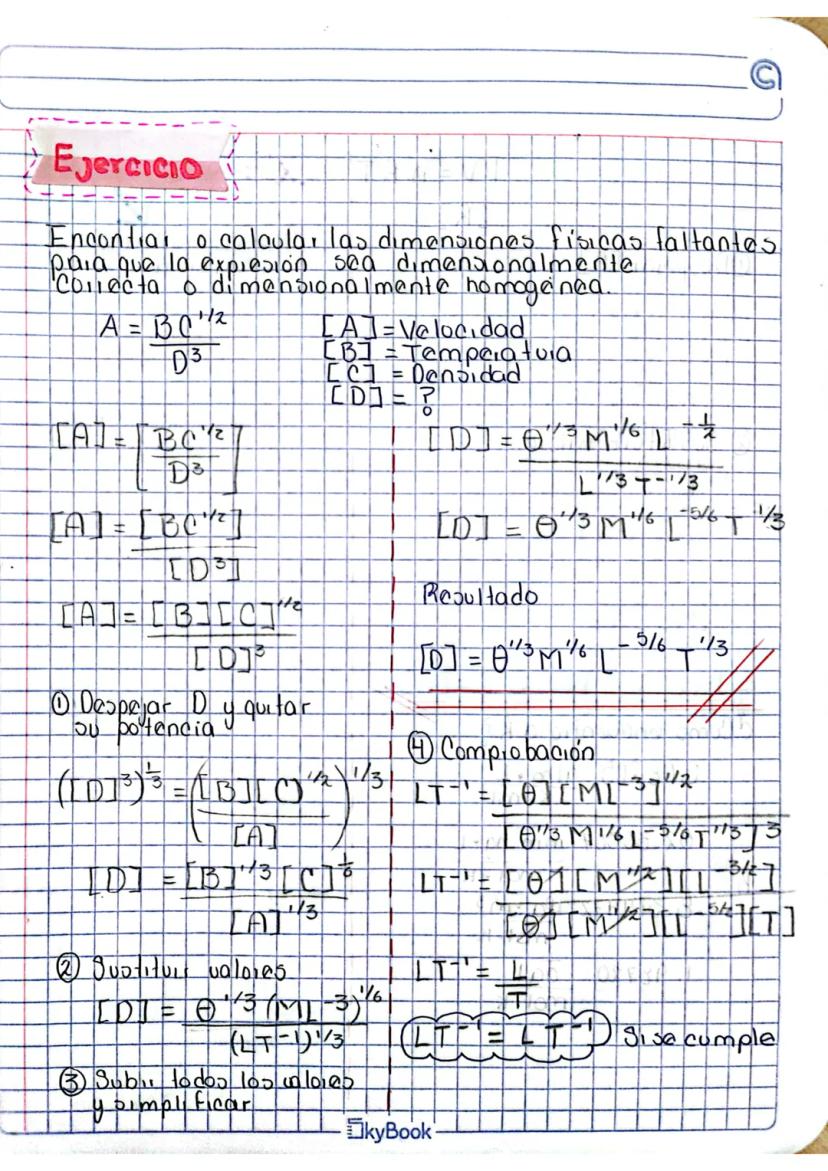 Ejercicio
Encontrar o calcular las dimensiones físicas faltantes
para que la expresión sea dimensionalmente
correcta o dimensionalmente homogénea.
A = BC^1/2 / D^3
[A] = Velocidad
[B] = Temperatura
[C] = Densidad
[D] = ?
[A] = [BC^1/2 / D^3]
[A] = [BC^1/2] / [D^3]
[A] = [B][C]^1/2 / [D]^3
① Despejar D y quitar
su potencia
([D]^3)^1/3 = ([B][C]^1/2 / [A])^1/3
[D] = [B]^1/3 [C]^1/6 / [A]^1/3
② Sustituir valores
[D] = θ^1/3 (ML^-3)^1/6 / (LT^-1)^1/3
③ Subir todos los valores
y simplificar
[D] = θ^1/3 M^1/6 L^-1/2 / L^1/3 T^-1/3
[D] = θ^1/3 M^1/6 L^-5/6 T^1/3
Resultado
[D] = θ^1/3 M^1/6 L^-5/6 T^1/3
④ Comprobación
LT^-1 = [θ][ML^-3]^1/2 / [θ^1/3 M^1/6 L^-5/6 T^1/3]^3
LT^-1 = [θ][M^1/2][L^-3/2] / [θ][M^1/2][L^-5/2][T]
LT^-1 = L / T
LT^-1 = LT^-1 Si se cumple
SkyBook